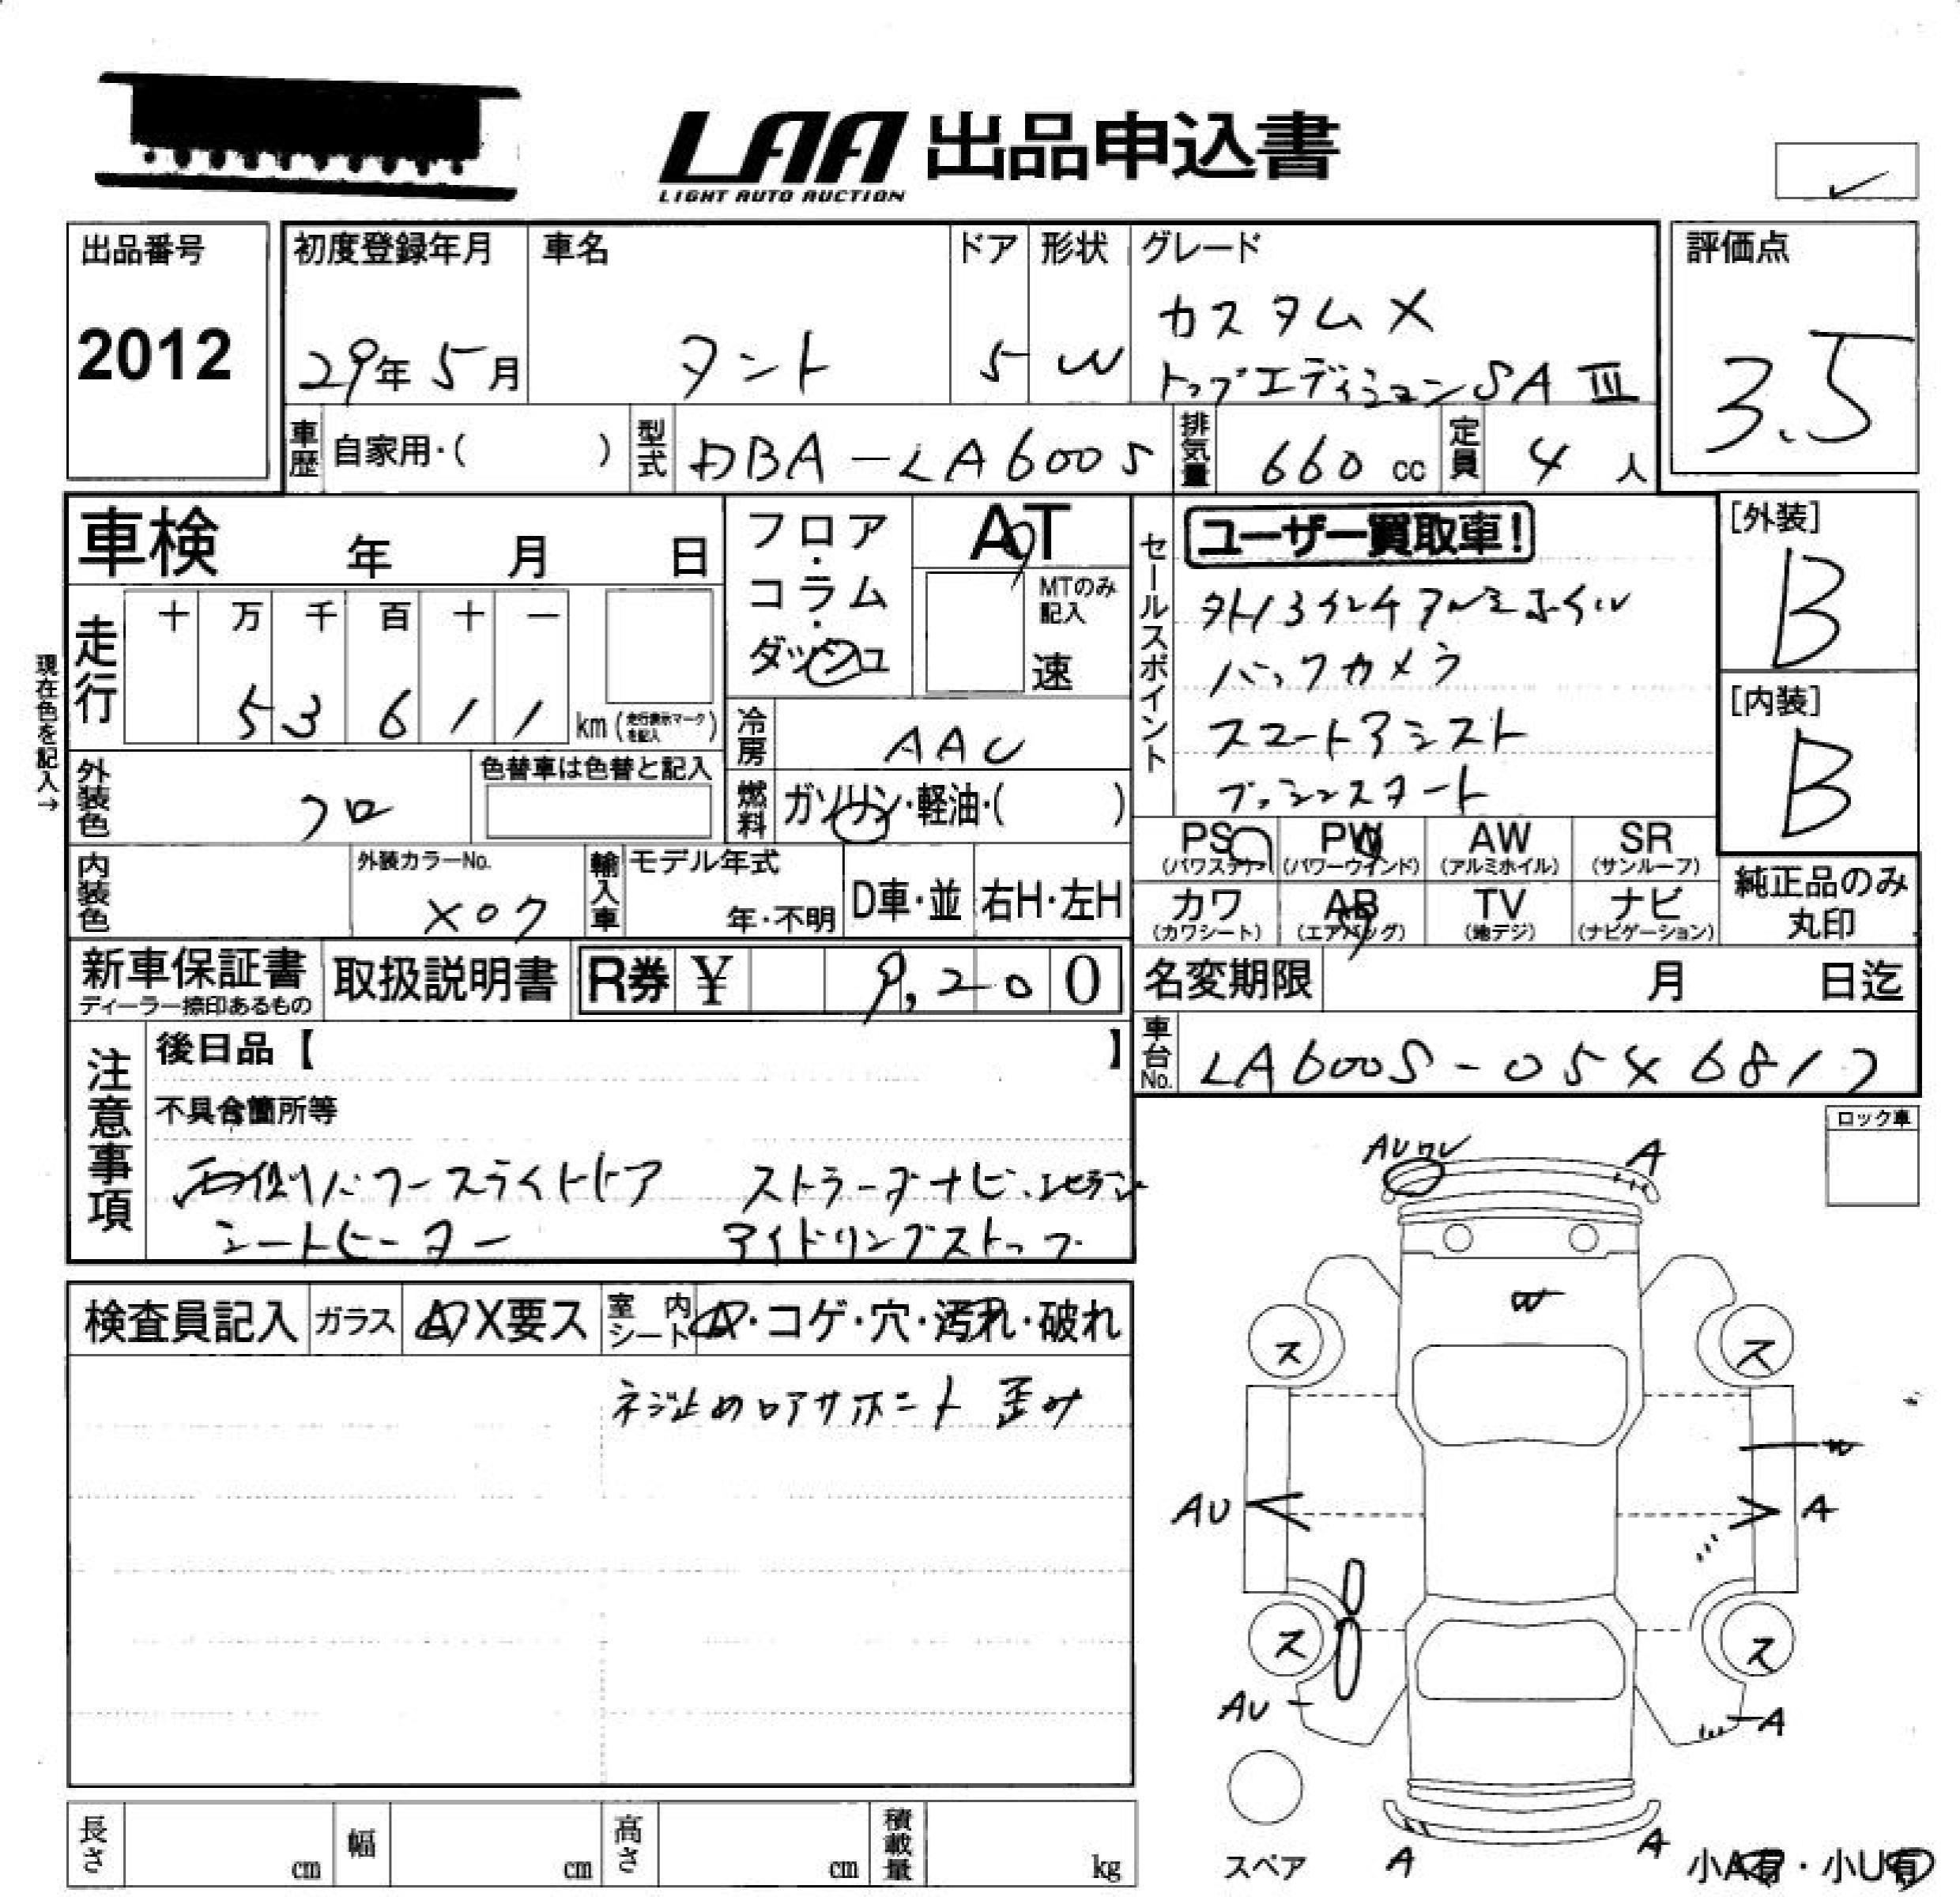 LAA 出品申込書
LIGHT AUTO AUCTION
出品番号
2012
初度登録年月
29年 5月
車名
タント
ドア
5
形状
W
グレード
カスタムX
トップエディションSAⅢ
評価点
3.5
車歴 自家用・( )
型式 DBA-LA600S
排気量 660 cc
定員 4 人
車検 年 月 日
フロア・コラム・ダッシュ
AT
MTのみ記入
速
セールスポイント
ユーザー買取車!
外13インチアルミホイル
バックカメラ
スマートアシスト
プッシュスタート
[外装]
B
[内装]
B
現在色を記入→
走行 十 万 千 百 十 一
5 3 6 1 1 km (走行表示マークを記入)
冷房 AAC
燃料 ガソリン・軽油・( )
外装色 クロ
色替車は色替と記入
内装色
外装カラーNo.
X07
輸入車 モデル年式
年・不明
D車・並
右H・左H
PS (パワステ)
PW (パワーウインド)
AW (アルミホイル)
SR (サンルーフ)
カワ (カワシート)
AB (エアバッグ)
TV (地デジ)
ナビ (ナビゲーション)
純正品のみ丸印
新車保証書
ディーラー捺印あるもの
取扱説明書
R券 ¥ 9,200
名変期限 月 日迄
車台No. LA600S-0546817
注意事項
後日品【 】
不具合箇所等
両側パワースライドドア ストラーダナビ.
シートヒーター アイドリングストップ
検査員記入 ガラス A X要ス 室内シート A・コゲ・穴・汚れ・破れ
ネジ止めロアサポート 歪み
ロック車
AU A
W
ス ス
W
AU A
ス ス
AU A
スペア
A A
小A有・小U有
長さ cm 幅 cm 高さ cm 積載量 kg